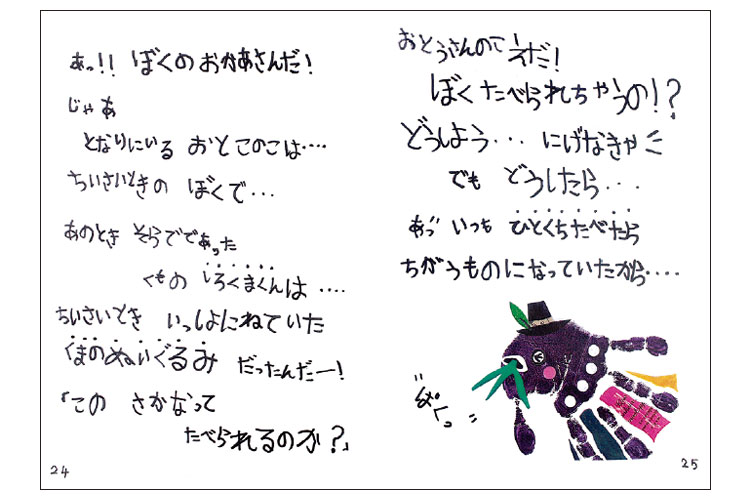 あっ!! ぼくのおかあさんだ!
じゃあ
となりにいる おとこのこは‥‥
ちいさいときの ぼくで‥‥
あのとき そらでであった
くもの しろくまくんは ‥‥
ちいさいとき いっしょにねていた
くまのぬいぐるみ だったんだー!
「この さかなって
たべられるのか?」
24
おとうさんのこえだ!
ぼくたべられちゃうの!?
どうしよう‥‥ にげなきゃ
でも どうしたら‥‥
あっ いつも ひとくちたべたら
ちがうものになっていたから‥‥
ぱくっ
25